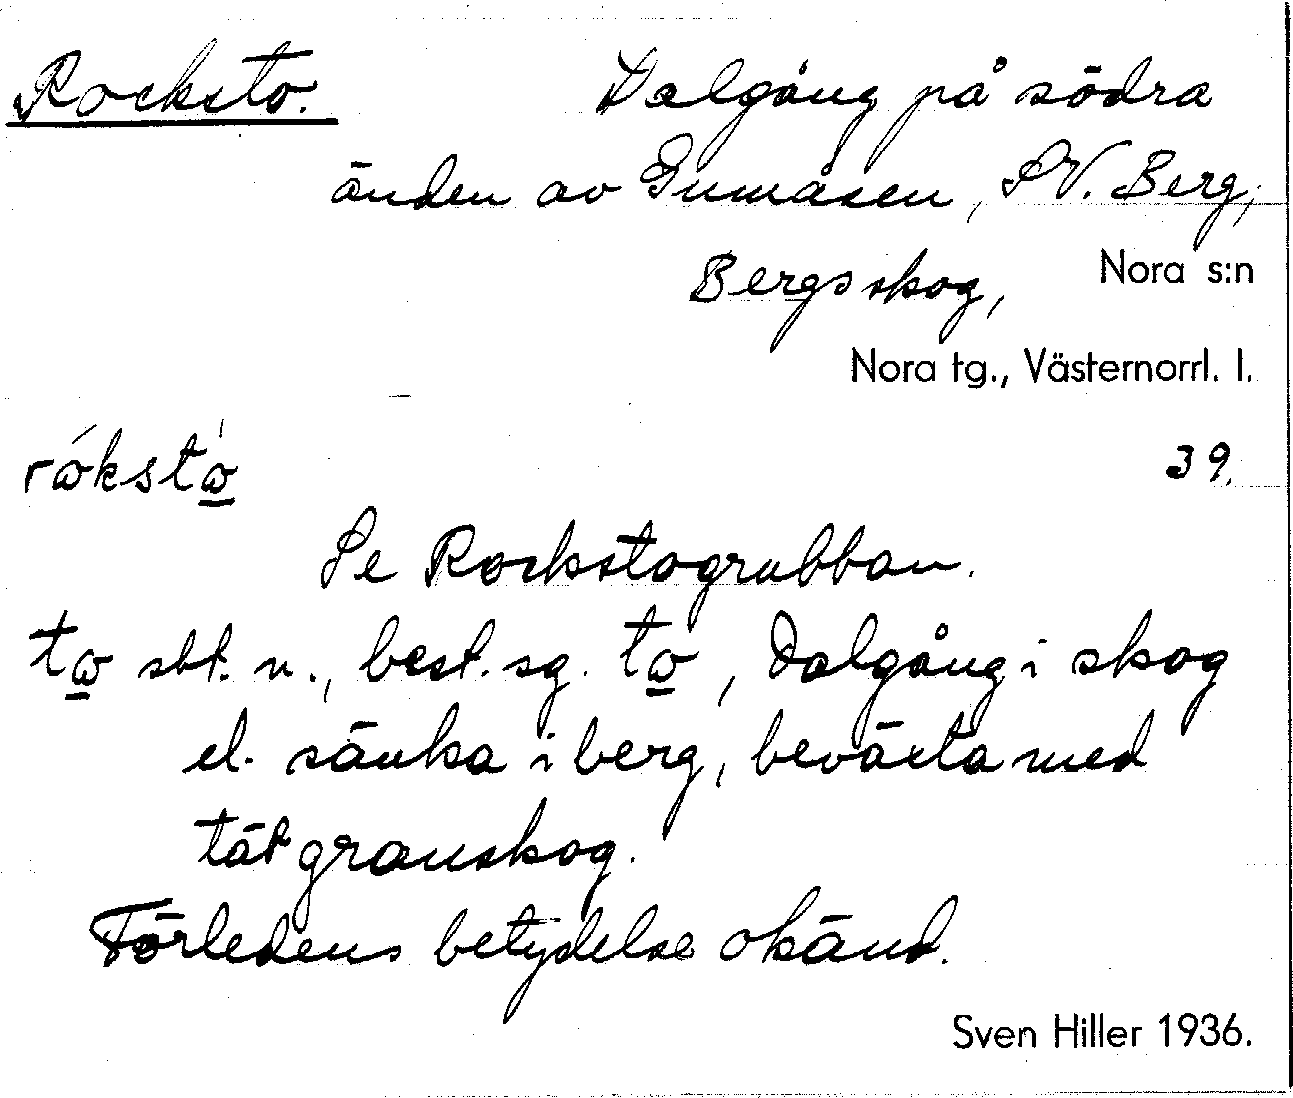 Rocksto. Dalgång på södra
änden av Gumåsen, SV. Berg,
Bergsskog, Nora s:n
Nora tg., Västernorrl. l.
rώkstὼ̲ 39.
Se Rockstograbban.
tω̲ sbt. n., best. sg. tω̲, Dalgång i skog
el. sänka i berg, beväxta med
tät granskog.
Förledens betydelse okänd.
Sven Hiller 1936.